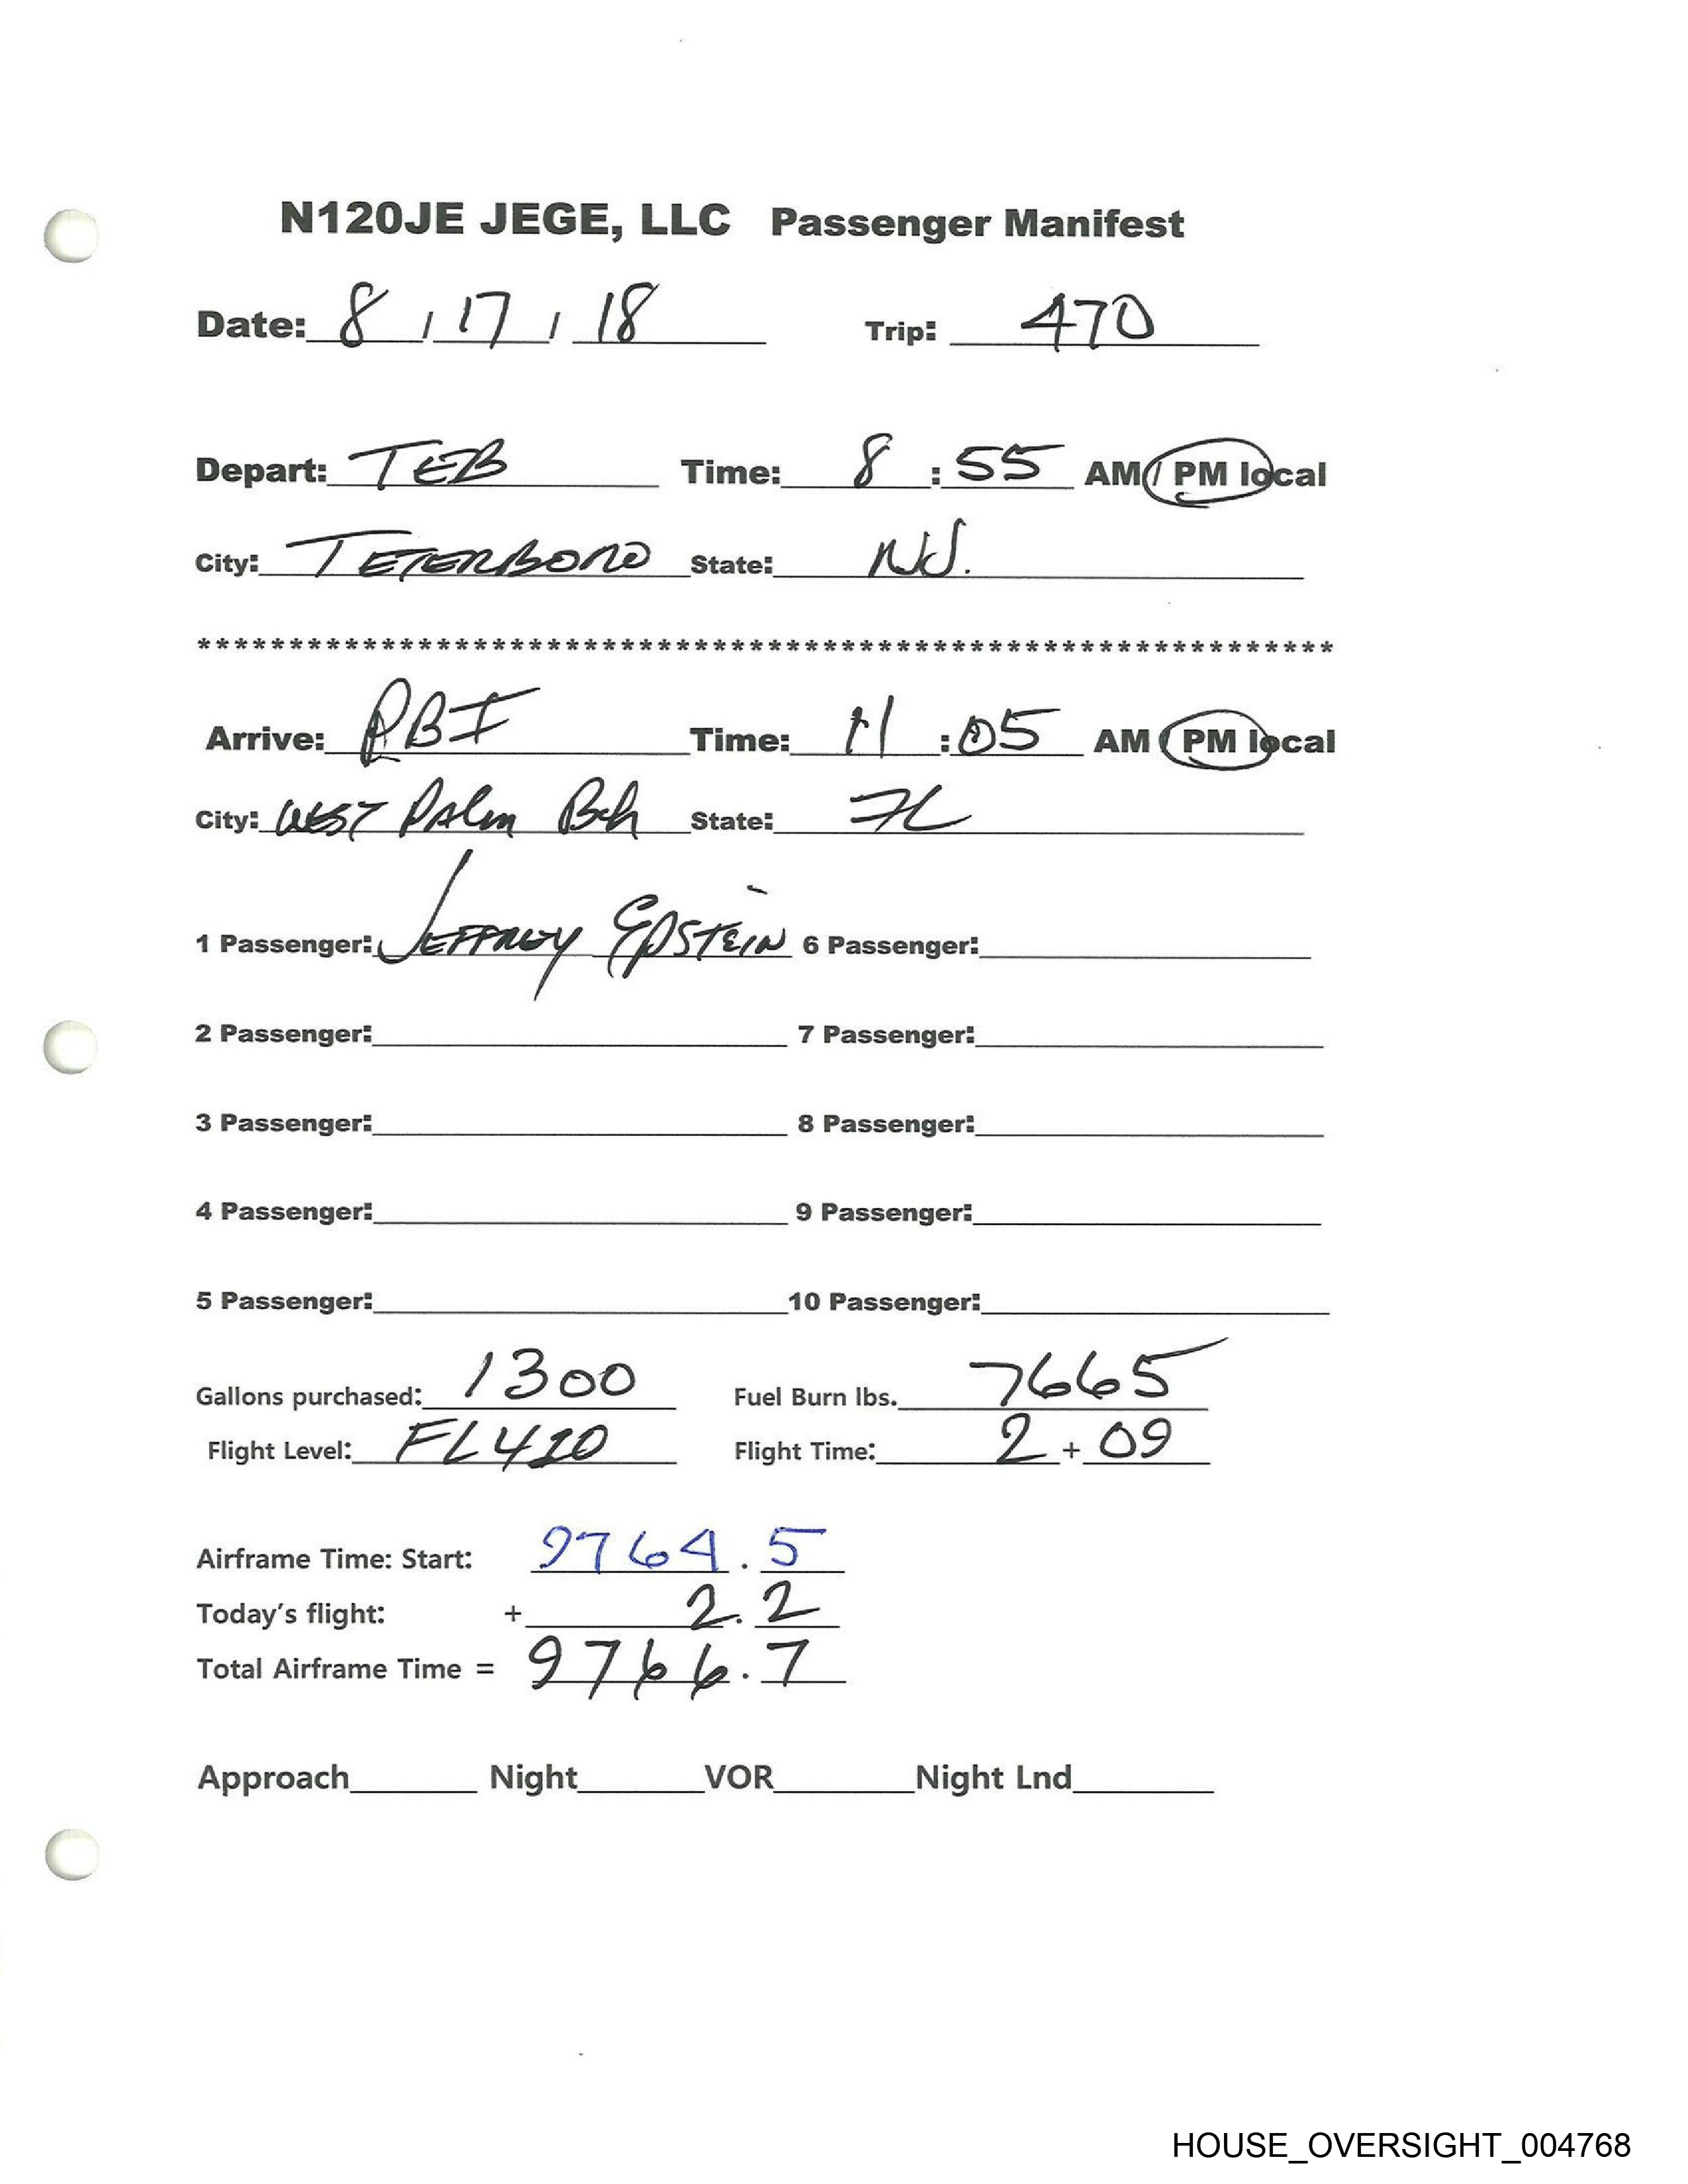 N120JE JEGE, LLC Passenger Manifest
Date: 8 / 17 / 18 Trip: 470
Depart: TEB Time: 8 : 55 AM / PM local
City: TETERBORO State: NJ.
**************************************************************
Arrive: PBI Time: 11 : 05 AM / PM local
City: WEST PALM Bch State: FL
1 Passenger: JEFFREY EPSTEIN 6 Passenger:
2 Passenger: 7 Passenger:
3 Passenger: 8 Passenger:
4 Passenger: 9 Passenger:
5 Passenger: 10 Passenger:
Gallons purchased: 1300 Fuel Burn lbs. 7665
Flight Level: FL410 Flight Time: 2 + 09
Airframe Time: Start: 9764.5
Today's flight: + 2.2
Total Airframe Time = 9766.7
Approach Night VOR Night Lnd
HOUSE_OVERSIGHT_004768